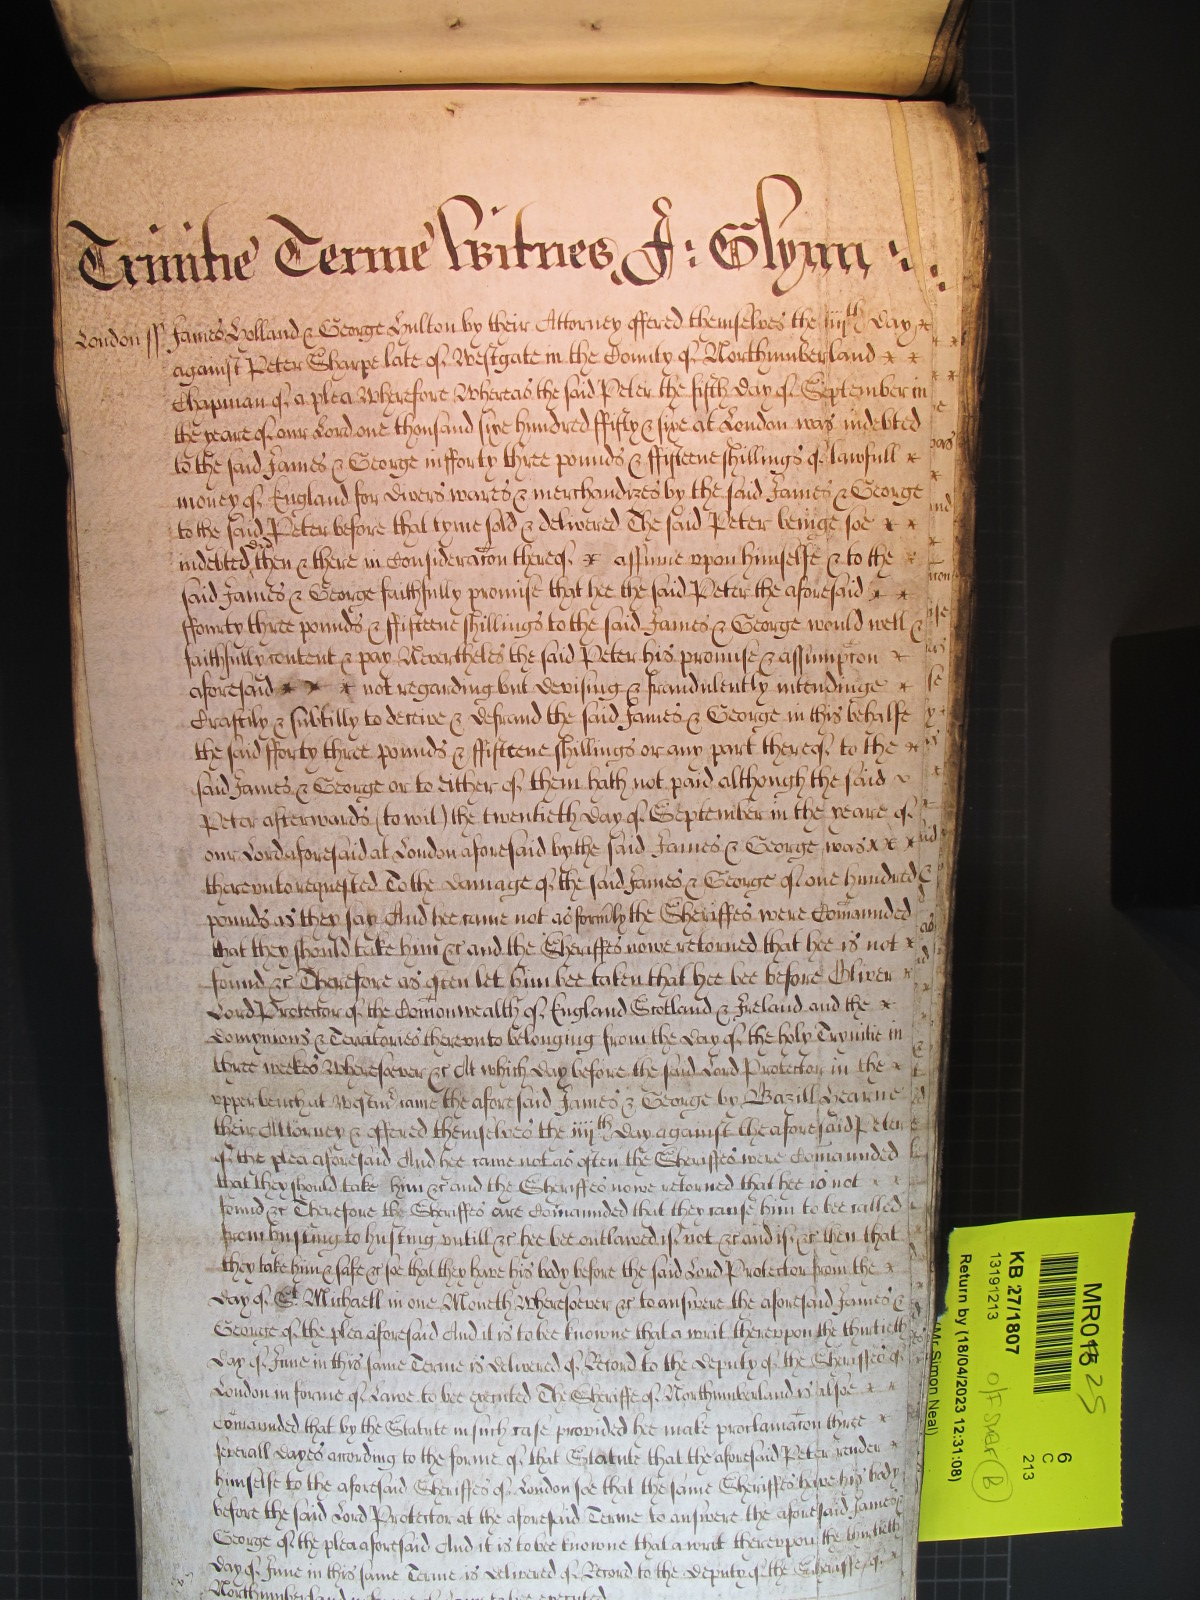 Trinitie Terme Witnes J: Glynn
London ss James Holland & George Hulton by their Attorney offered themselves the iiijth day
against Peter Sharpe late of Westgate in the County of Northumberland
Chapman of a plea Wherefore Whereas the said Peter the fifth day of September in
the yeare of our Lord one thousand sixe hundred ffifty & sixe at London was indebted
to the said James & George in fforty three pounds & ffifteene shillings of lawfull
money of England for divers wares & merchandizes by the said James & George
to the said Peter before that tyme sold & delivered The said Peter beinge soe
indebted did then & there in Consideracon thereof assume upon himselfe & to the
said James & George faithfully promise that hee the said Peter the aforesaid
ffourty three pounds & ffifteene shillings to the said James & George would well &
faithfully content & pay Nevertheles the said Peter his promise & assumpcon
aforesaid not regarding but devising & fraudulently intendinge
Craftily & subtilly to deceive & defraud the said James & George in this behalfe
the said fforty three pounds & ffifteene shillings or any part thereof to the
said James & George or to either of them hath not paid although the said
Peter afterwards (to wit) the twentieth day of September in the yeare of
our Lord aforesaid at London aforesaid by the said James & George was
thereunto requested To the damage of the said James & George of one hundred
pounds as they say And hee came not as formerly the Sheriffes were Comaunded
that they should take him &c and the Sheriffes nowe returned that hee is not
found &c Therefore as often let him bee taken that hee bee before Oliver
Lord Protector of the Comonwealth of England Scotland & Ireland and the
Domynions & Territories thereunto belonging from the day of the holy Trynitie in
three weekes Wheresoever &c At which day before the said Lord Protector in the
upper bench at Westmr came the aforesaid James & George by Bazill Hearne
their Attorney & offered themselves the iiijth day against the aforesaid Peter
of the plea aforesaid And hee came not as often the Sheriffes were Comaunded
that they should take him &c and the Sheriffes nowe returned that hee is not
found &c Therefore the Sheriffes are Comaunded that they cause him to bee called
from husting to husting untill &c hee bee outlawed if not &c and if &c then that
they take him & safe &c soe that they have his body before the said Lord Protector from the
day of St Michaell in one Moneth Wheresoever &c to answere the aforesaid James &
George of the plea aforesaid And it is to bee knowne that a writ thereupon the thirtieth
day of June in this same Terme is delivered of Record to the deputy of the Sheriffes of
London in forme of Lawe to bee executed The Sheriffe of Northumberland is alsoe
Comaunded that by the Statute in such case provided hee make proclamacon three
severall dayes according to the forme of that Statute that the aforesaid Peter render
himselfe to the aforesaid Sheriffes of London soe that the same Sheriffes have his body
before the said Lord Protector at the aforesaid Terme to answere the aforesaid James &
George of the plea aforesaid And it is to bee knowne that a writ thereupon the thirtieth
day of June in this same Terme is delivered of Record to the deputy of the Sheriffe of
Northumberland in forme of Lawe to bee executed
MR015
25
6
C
213
KB 27/1807
13191213
Return by (18/04/2023 12:31:08)
(Mr Simon Neal)